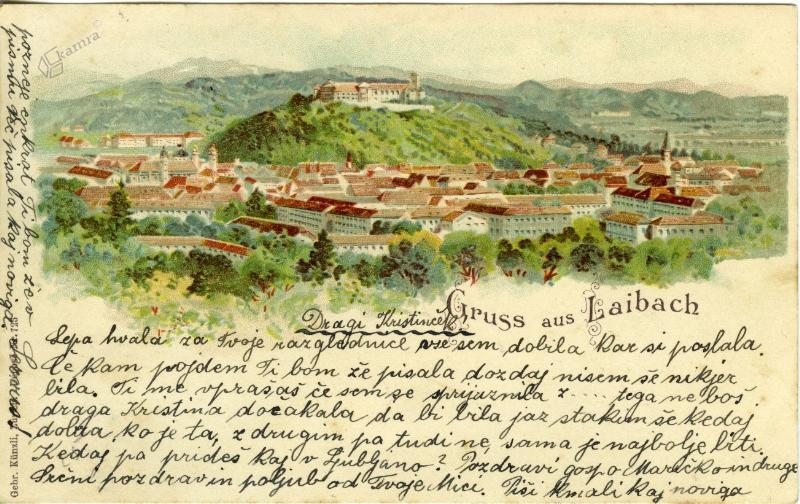 kamra
Gruss aus Laibach
Dragi Kristinček!
Lepa hvala za Tvoje razglednice vse sem dobila kar si poslala.
Če kam pojdem Ti bom že pisala dozdaj nisem še nikjer
bila. Ti me vprašaš če sem se sprijaznila z .... tega ne boš
draga Kristina dočakala da bi bila jaz s takim še kedaj
dobra ko je ta, z drugim pa tudi ne, sama je najbolje biti.
Kedaj pa prideš kaj v Ljubljano? Pozdravi gospo Maričko in druge
Srčni pozdrav in poljub od Tvoje Mici. Piši kmali kaj noviga
pozneje enkrat Ti bom že v
pismu več pisala kaj noviga
Gebr. Künzli,